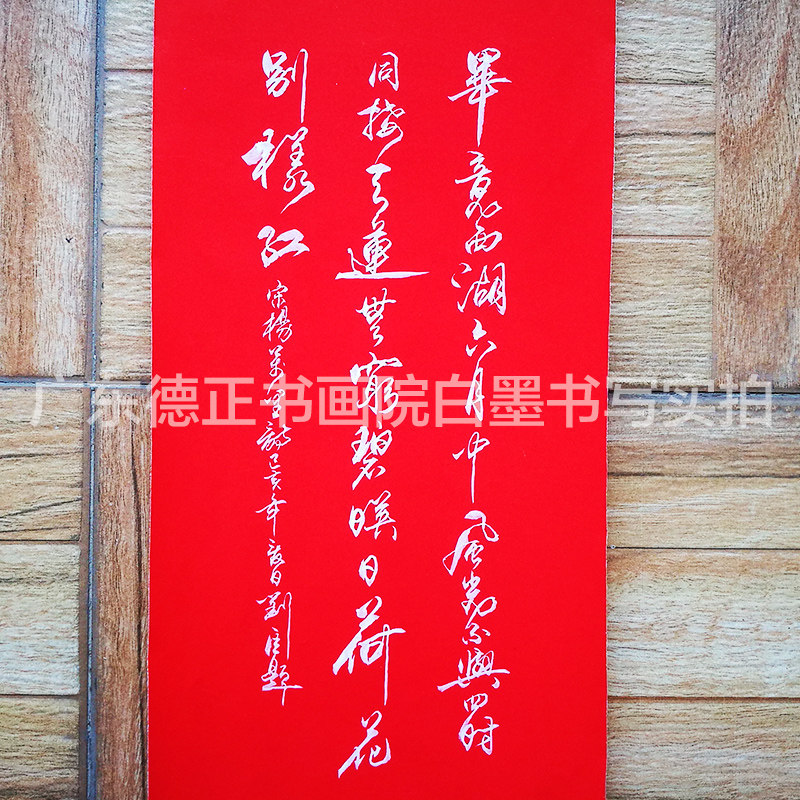 畢竟西湖六月中風光不與四時
同接天蓮無窮碧暎日荷花
別樣紅
宋楊萬里詩己亥年春日劉題
广东德正书画院白墨书写实拍